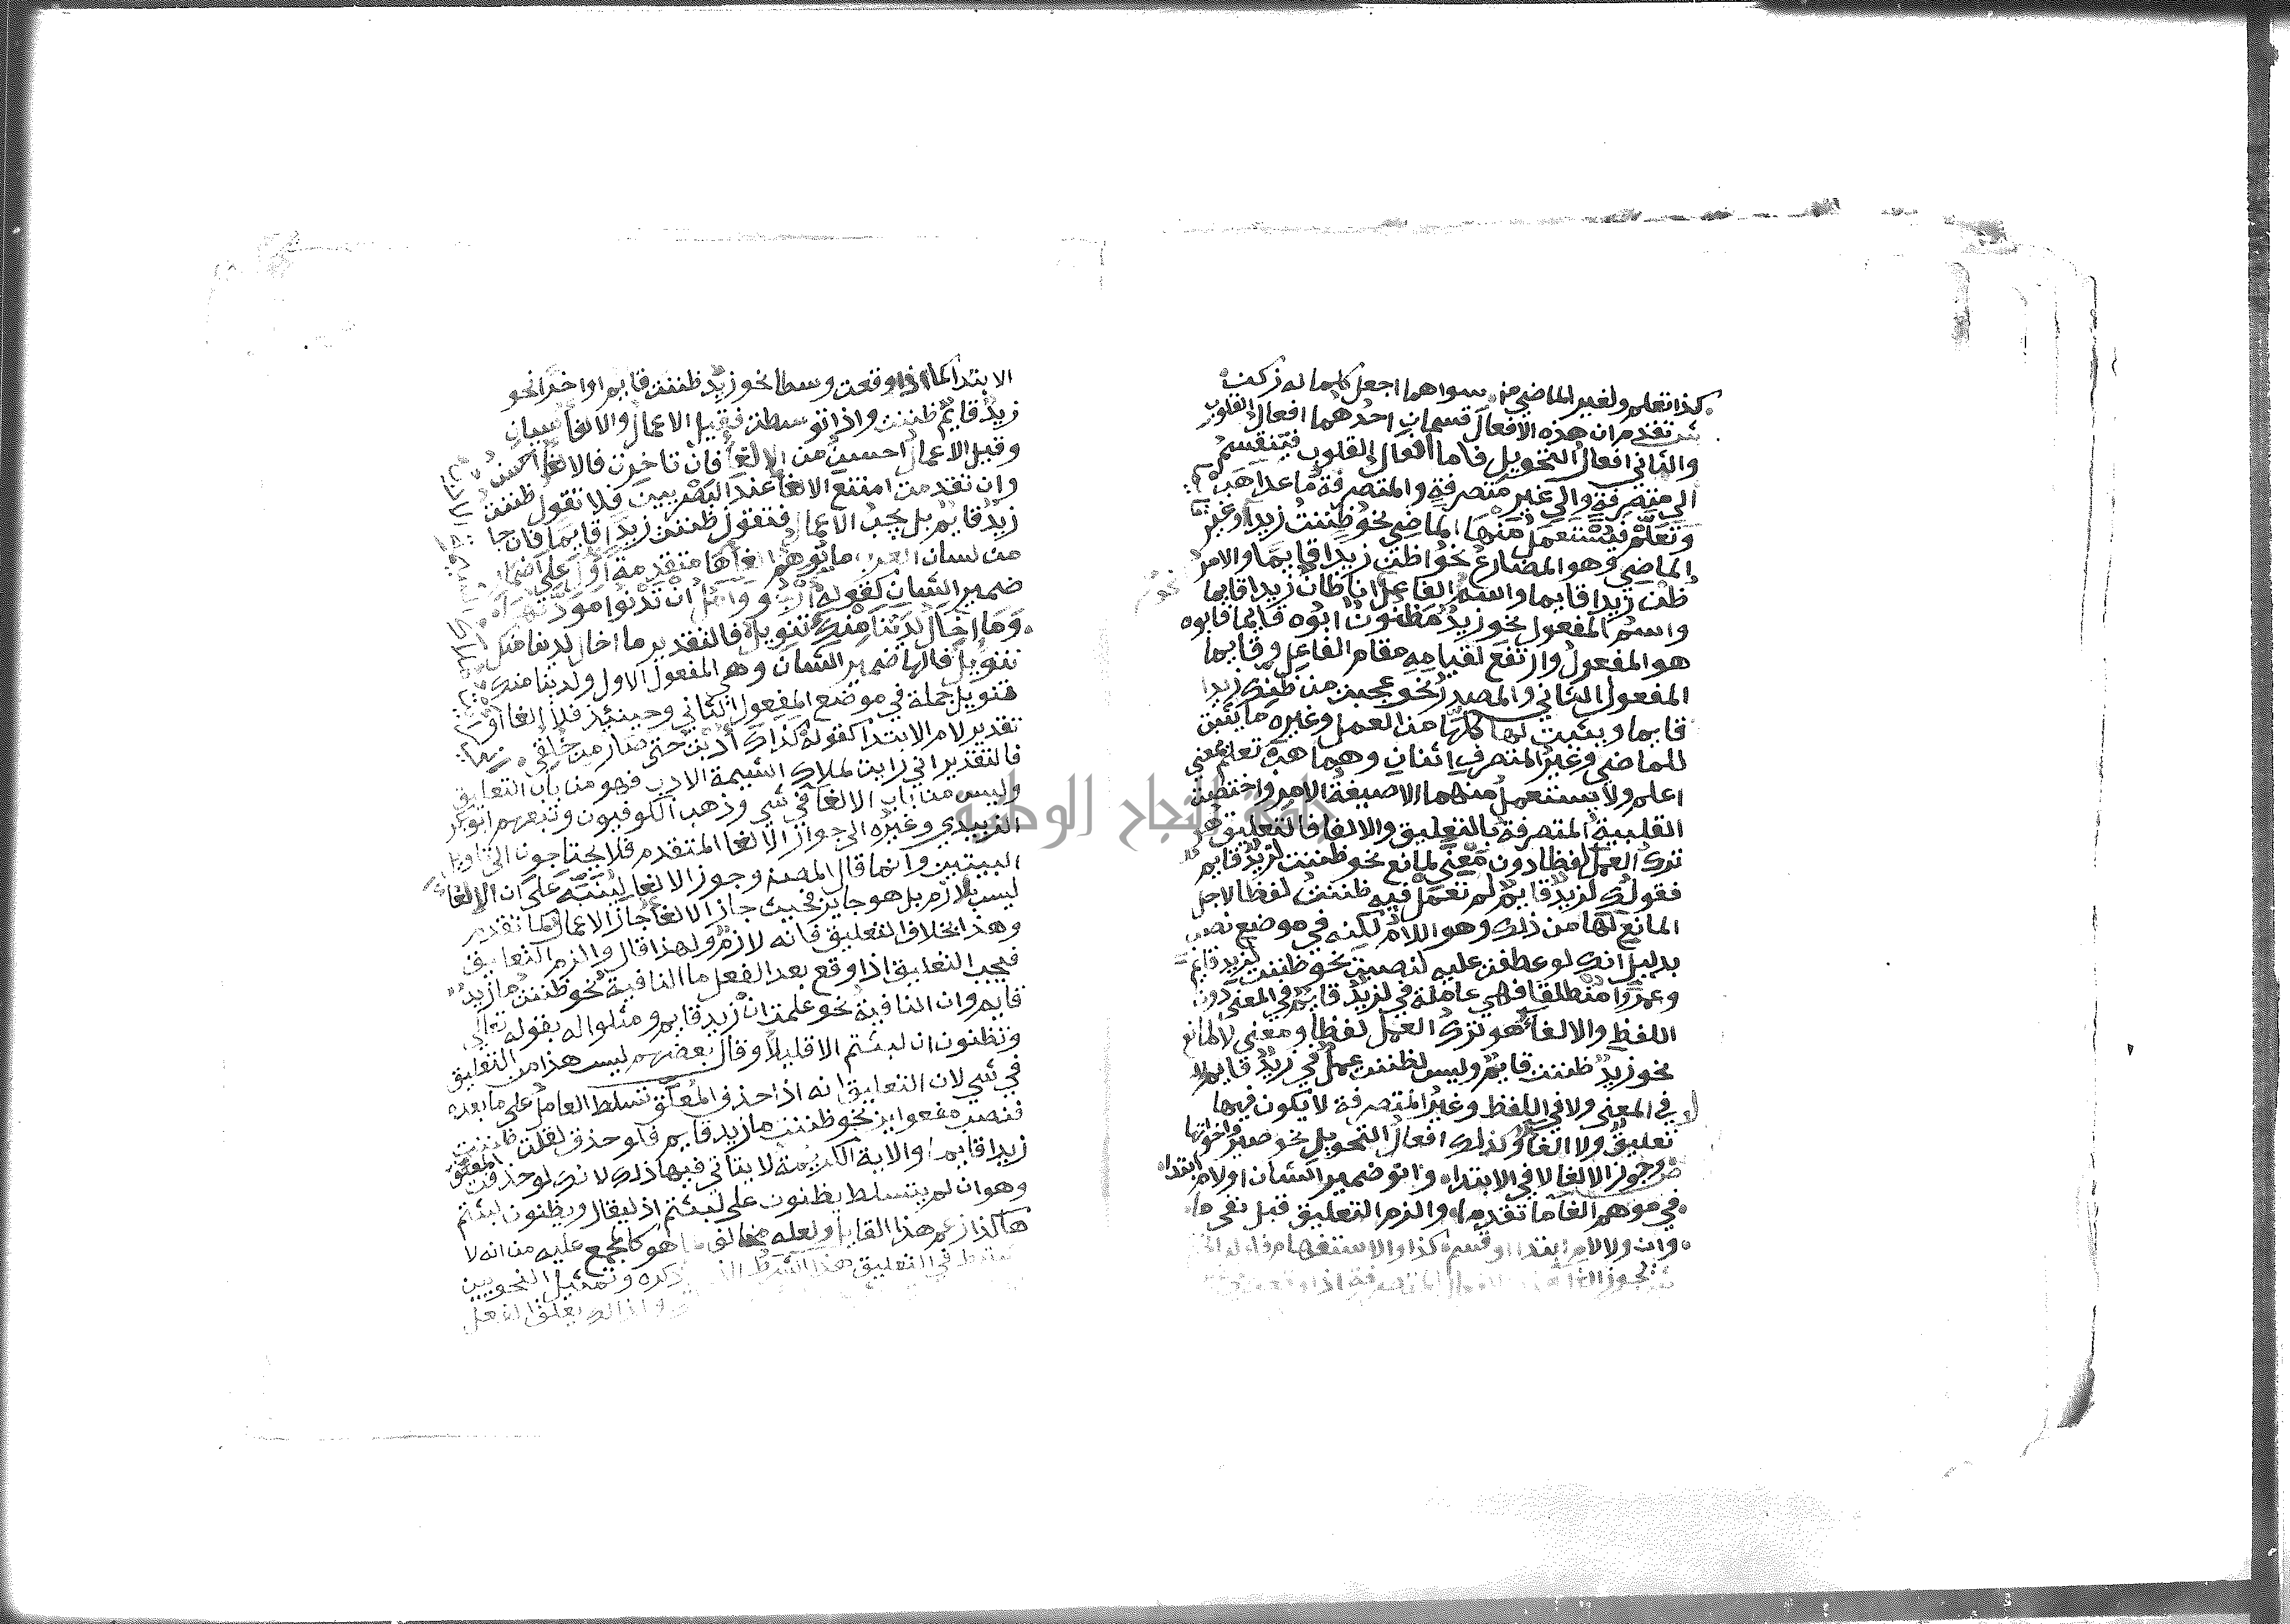 كذا تعلم ولغير الماض من سواهما اجعل كلما له زكن
ش تقدم ان هذه الافعال قسمان احدهما افعال القلوب
والثاني افعال التحويل فاما افعال القلوب فتنقسم
الي متصرفة والي غير متصرفة والمتصرفة ما عدا هب
وتعلم فيستعمل منها الماضي نحو ظننت زيدا وغير
الماضي وهو المضارع نحو اظن زيدا قايما والامر
ظن زيدا قايما واسم الفاعل انا ظان زيدا قايما
واسم المفعول نحو زيد مظنون ابوه قايما فابوه
هو المفعول وارتفع لقيامه مقام الفاعل وقايما
المفعول الثاني والمصدر نحو عجبت من ظنك زيدا
قايما ويثبت لها كلها من العمل وغيره ما يثبت
للماضي وغير المتصرف اثنان وهما هب وتعلم بمعني
اعلم ولا يستعمل منهما الا صيغة الامر واختصت
القلبية المتصرفة بالتعليق والالغا فالتعليق هو
ترك العمل لفظا دون معني لمانع نحو ظننت لزيد قايم
فقولك لزيد قايم لم تعمل فيه ظننت لفظا لاجل
المانع لها من ذلك وهو اللام لكنه في موضع نصب
بدليل انك لو عطفت عليه لنصبت نحو ظننت لزيد قايم
وعمروا منطلقا فهي عاملة في لزيد قايم في المعني دون
اللفظ والالغا هو ترك العمل لفظا ومعني لا لمانع
نحو زيد ظننت قايم وليس لظننت عمل في زيد قايم لا
في المعني ولا في اللفظ وغير المتصرفة لا يكون فيها
تعليق ولا الغا وكذلك افعال التحويل نحو صير واخواتها
ص وجوز الالغا لا في الابتدا وانو ضمير الشان او لام ابتدا
في موهم الغا ما تقدما والتزم التعليق قبل نفي ما
وان ولا لام ابتدا او قسم كذا والاستفهام ذا له
ش يجوز الغا المتصرفة اذا وقعت
الابتدا كما اذا وقعت وسطا نحو زيد ظننت قايم او اخرا نحو
زيد قايم ظننت واذا توسطت فقيل الاعمال والالغا سيان
وقيل الاعمال احسن من الالغا فان تاخرت فالالغا احسن
وان تقدمت امتنع الالغا عند البصريين فلا تقول ظننت
زيد قايم بل يجب الاعمال فتقول ظننت زيدا قايما فان جا
من لسان العرب ما يوهم الغاها متقدمة اول علي اضمار
ضمير الشان كقوله ارجو وامل ان تدنوا مودتها
وما اخال لدينا منك تنويل فالتقدير ما اخال لدينا منك
تنويل فالها ضمير الشان وهي المفعول الاول ولدينا منك
تنويل جملة في موضع المفعول الثاني وحينيذ فلا الغا او علي
تقدير لام الابتدا كقوله كذاك ادبت حتي صار من خلقي
فالتقدير اني رايت لملاك الشيمة الادب فهو من باب التعليق
وليس من باب الالغا في شي وذهب الكوفيون وتبعهم ابو بكر
الزبيدي وغيره الي جواز الالغا المتقدم فلا يحتاجون الي تاويل
البيتين وانما قال المصنف وجوز الالغا لينبه علي ان الالغا
ليس بلازم بل هو جايز فحيث جاز الالغا جاز الاعمال كما تقدم
وهذا بخلاف التعليق فانه لازم ولهذا قال والتزم التعليق
فيجب التعليق اذا وقع بعد الفعل ما النافية نحو ظننت ما زيد
قايم وان النافية نحو علمت ان زيد قايم ومثلوا له بقوله تعالي
وتظنون ان لبثتم الا قليلا وقال بعضهم ليس هذا من التعليق
في شي لان التعليق انه اذا حذف المعلق تسلط العامل علي ما بعده
فنصب مفعولين نحو ظننت ما زيد قايم فلو حذف لقلت ظننت
زيدا قايما والاية الكريمة لا يتاتي فيها ذلك لانك لو حذفت المعلق
وهو ان لم يتسلط يظنون علي لبثتم اذ ليقال ويظنون لبثتم
هاكذا زعم هذا القايل ولعله مخالف لما هو كالمجمع عليه من انه لا
يشترط في التعليق هذا الشرط الذي ذكره وتمثيل النحويين